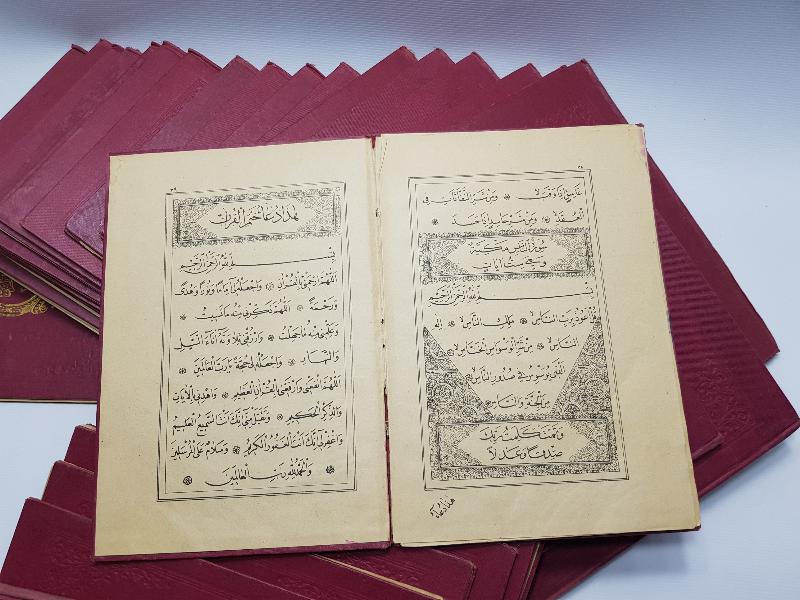 ٣٨
غَاسِقٍ إِذَا وَقَبَ لا وَمِنْ شَرِّ النَّفَّاثَاتِ فِي
الْعُقَدِ لا وَمِنْ شَرِّ حَاسِدٍ إِذَا حَسَدَ
سورة الناس مكية
وهي ست آيات
بِسْمِ اللّٰهِ الرَّحْمٰنِ الرَّحِيمِ
قُلْ أَعُوذُ بِرَبِّ النَّاسِ لا مَلِكِ النَّاسِ لا إِلٰهِ
النَّاسِ لا مِنْ شَرِّ الْوَسْوَاسِ الْخَنَّاسِ لا
الَّذِي يُوَسْوِسُ فِي صُدُورِ النَّاسِ لا
مِنَ الْجِنَّةِ وَالنَّاسِ
وتمت كلمت ربك
صدقا وعدلا
هذا دعاء
٣٩
هذا دعا ختم القرآن
بِسْمِ اللّٰهِ الرَّحْمٰنِ الرَّحِيمِ
اَللّٰهُمَّ ارْحَمْنِي بِالْقُرْآنِ وَاجْعَلْهُ لِي إِمَامًا وَنُورًا وَهُدًى
وَرَحْمَةً اَللّٰهُمَّ ذَكِّرْنِي مِنْهُ مَا نَسِيتُ
وَعَلِّمْنِي مِنْهُ مَا جَهِلْتُ وَارْزُقْنِي تِلَاوَتَهُ آنَاءَ اللَّيْلِ
وَالنَّهَارِ وَاجْعَلْهُ لِي حُجَّةً يَا رَبَّ الْعَالَمِينَ
اَللّٰهُمَّ انْفَعْنِي وَارْفَعْنِي بِالْقُرْآنِ الْعَظِيمِ وَاهْدِنِي بِالْآيَاتِ
وَالذِّكْرِ الْحَكِيمِ وَتَقَبَّلْ مِنِّي إِنَّكَ أَنْتَ السَّمِيعُ الْعَلِيمُ
وَاغْفِرْ لِي إِنَّكَ أَنْتَ الْغَفُورُ الْكَرِيمُ وَسَلَامٌ عَلَى الْمُرْسَلِينَ
وَالْحَمْدُ لِلّٰهِ رَبِّ الْعَالَمِينَ